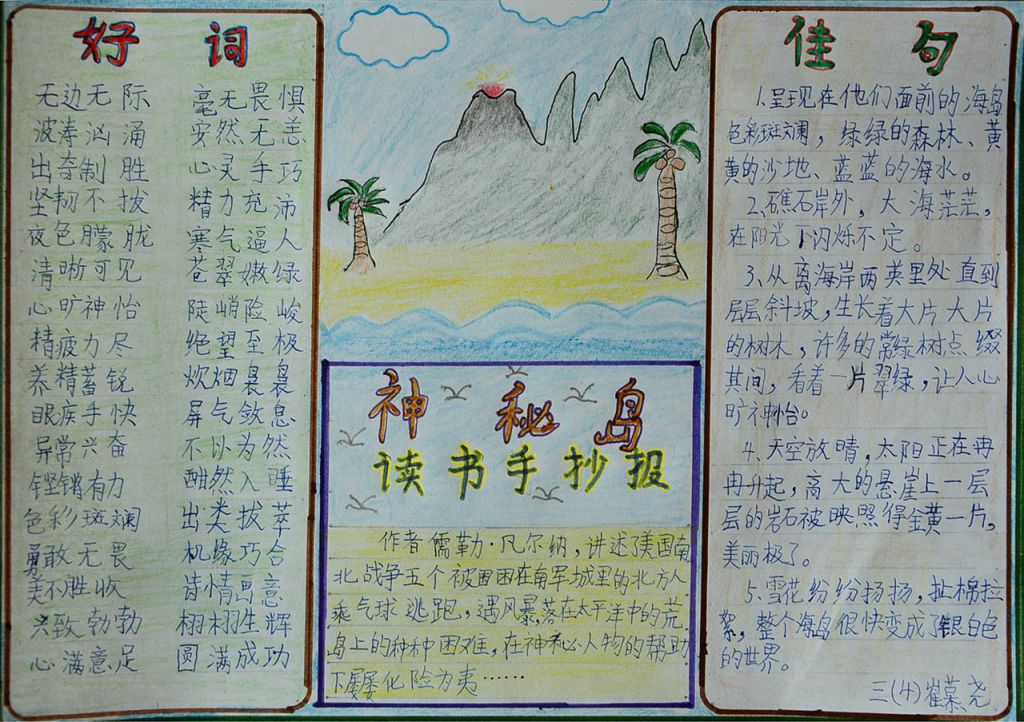 好词
无边无际 毫无畏惧
波涛汹涌 安然无恙
出奇制胜 心灵手巧
坚韧不拔 精力充沛
夜色朦胧 寒气逼人
清晰可见 苍翠嫩绿
心旷神怡 陡峭险峻
精疲力尽 绝望至极
养精蓄锐 炊烟袅袅
眼疾手快 屏气敛息
异常兴奋 不以为然
铿锵有力 酣然入睡
色彩斑斓 出类拔萃
勇敢无畏 机缘巧合
美不胜收 诗情画意
兴致勃勃 栩栩生辉
心满意足 圆满成功
神秘岛
读书手抄报
作者儒勒·凡尔纳,讲述了美国南
北战争五个被困困在南军城里的北方人
乘气球逃跑,遇风暴,落在太平洋中的荒
岛上的种种困难,在神秘人物的帮助
下屡屡化险为夷……
佳句
1.呈现在他们面前的海岛
色彩斑斓,绿绿的森林、黄
黄的沙地、蓝蓝的海水。
2.礁石岸外,大海茫茫,
在阳光下闪烁不定。
3.从离海岸两英里处直到
层层斜坡,生长着大片大片
的树木,许多的常绿树点缀
其间,看着一片翠绿,让人心
旷神怡。
4.天空放晴,太阳正在冉
冉升起,高大的悬崖上一层
层的岩石被映照得金黄一片,
美丽极了。
5.雪花纷纷扬扬,扯棉拉
絮,整个海岛很快变成了银白色
的世界。
三(4)崔慕尧